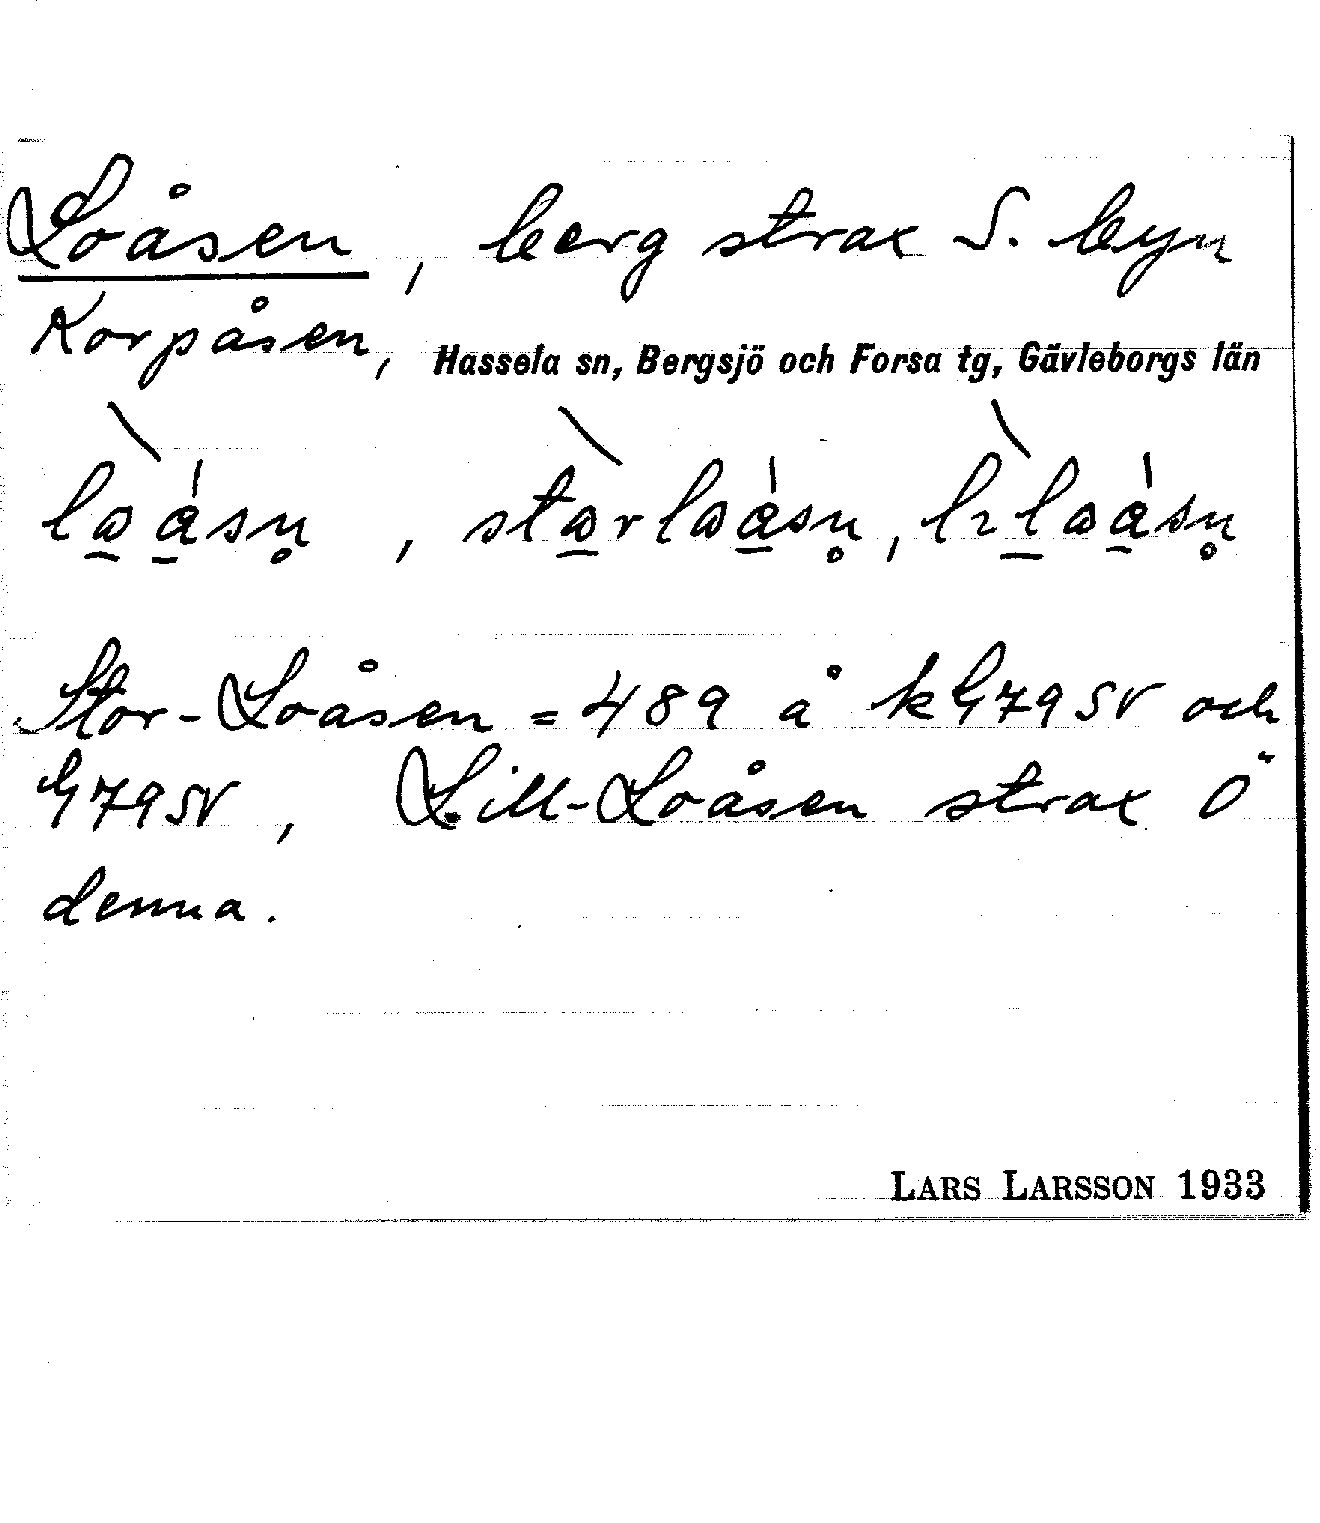 Loåsen, berg strax S. byn
Korpåsen, Hassela sn, Bergsjö och Forsa tg, Gävleborgs län
Stor-Loåsen = 489 å kG79SV och
G79SV, Lill-Loåsen strax Ö
denna.
LARS LARSSON 1933